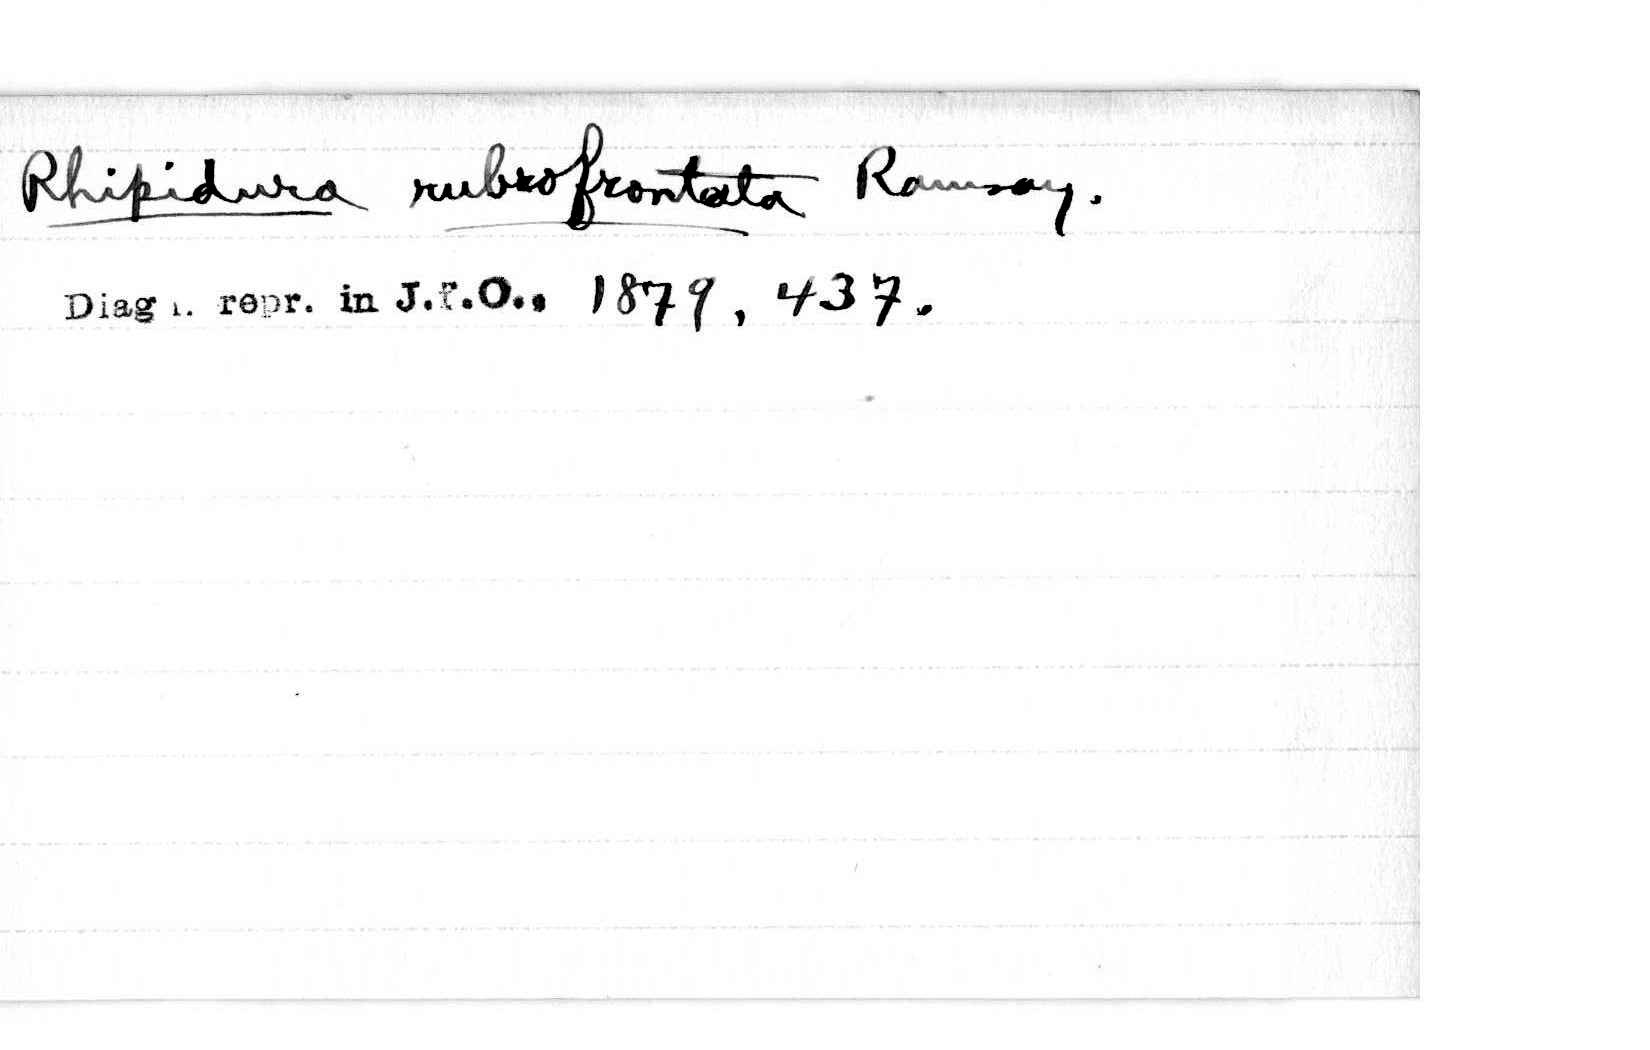 Rhipidura rubrofrontata Ramsay.
Diagn. repr. in J.f.O., 1879, 437.